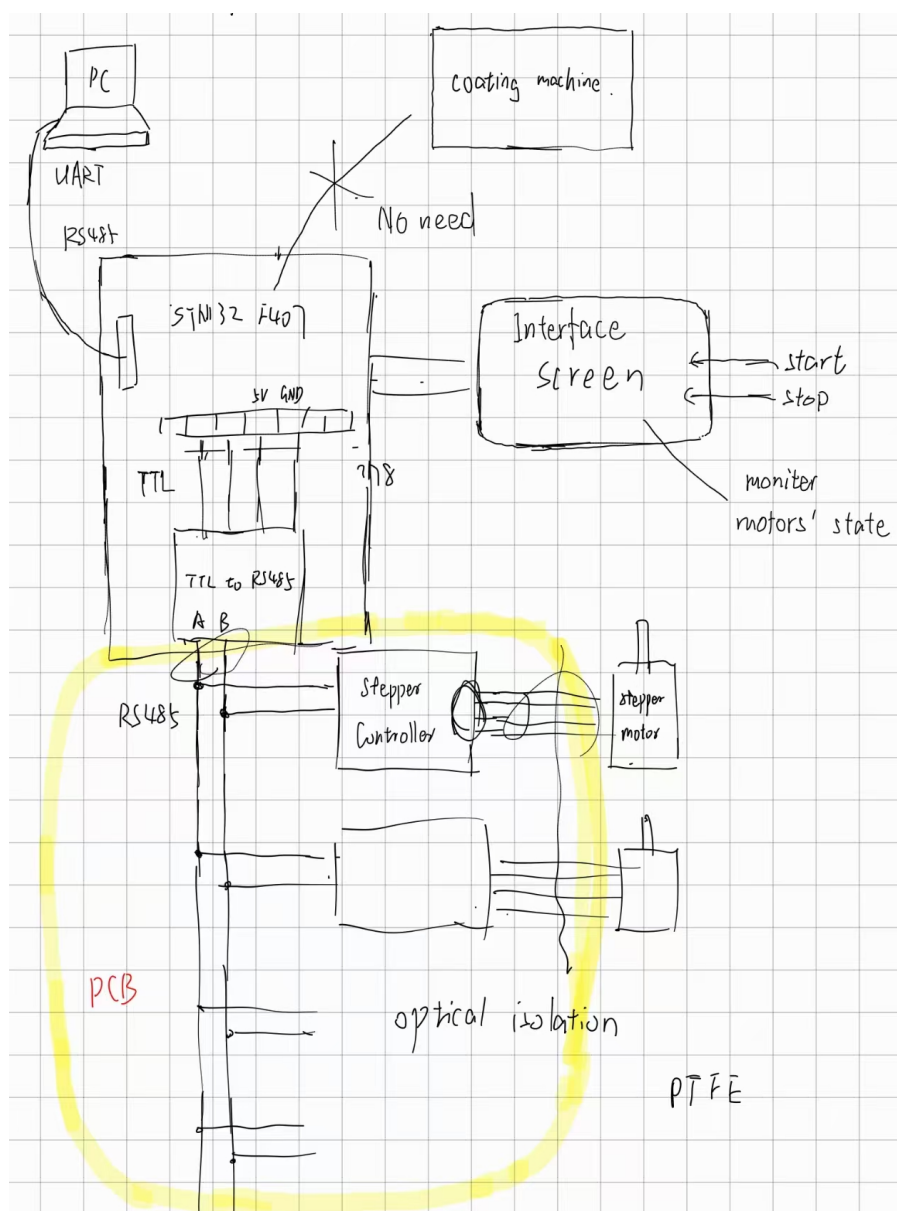 PC
coating machine.
UART
RS485
No need
STM32 F407
Interface
screen
start
stop
5V GND
TTL
moniter
motors' state
TTL to RS485
A B
RS485
Stepper
Controller
stepper
motor
PCB
optical isolation
PTFE